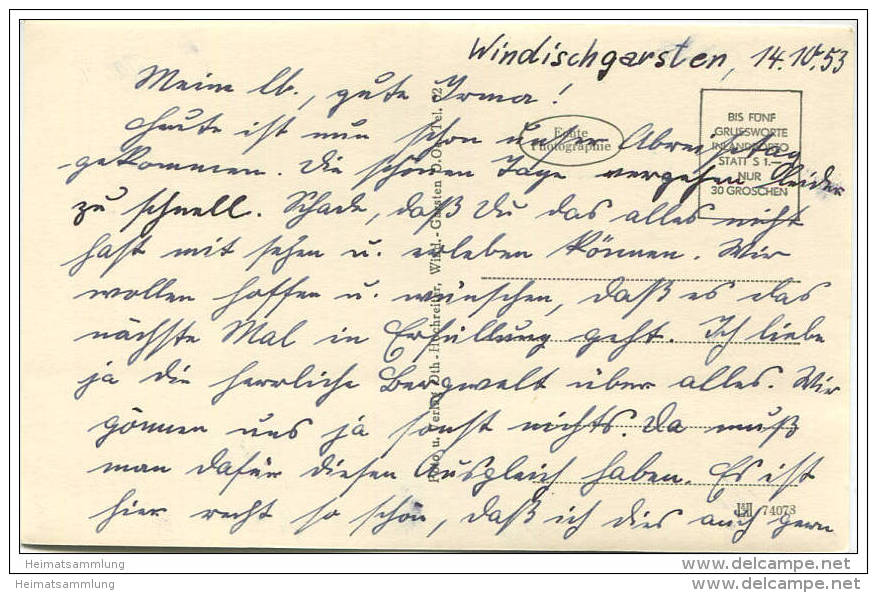 Windischgarsten, 14.10.53
Meine lb., gute Irma!
Heute ist nun schon unser Abreisetag
gekommen. Die schönen Tage vergehen leider
zu schnell. Schade, daß Du das alles nicht
hast mit sehen u. erleben können. Wir
wollen hoffen u. wünschen, daß es das
nächste Mal in Erfüllung geht. Ich liebe
ja die herrliche Bergwelt über alles. Wir
gönnen uns ja sonst nichts. Da muß
man dafür diesen Ausgleich haben. Es ist
hier recht so schön, daß ich dies auch gern
Echte
Photographie
BIS FÜNF
GRUSSWORTE
INLANDPORTO
STATT S 1.—
NUR
30 GROSCHEN
Foto u. Verlag Oth-Hochreiter, Wind.-Garsten O.Ö. Tel. 52
74078
Heimatsammlung
Heimatsammlung
delcampe.net
delcampe.net